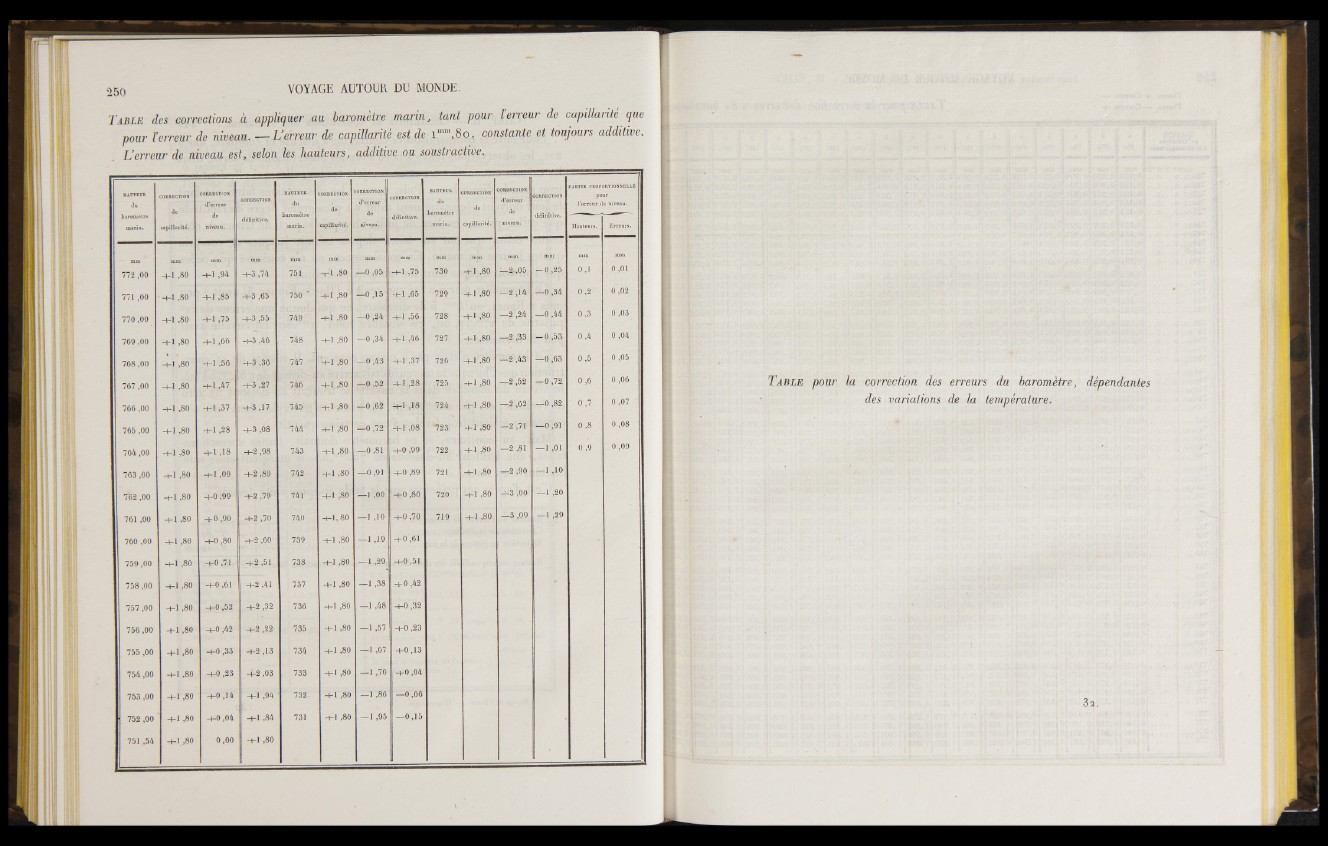 250 VOYAGE AUTOUR DU MONDE.
TABLE des corrections à appliquer au baromètre marin, tant pour l'erreur de capillarité que
pour l'erreur de niveau. — L'erreur de capillarité est de 1mm,80, constante et toujours additive.
L'erreur de niveau est, selon les hauteurs, additive ou soustractive.
HAUTEUR du baromètre marin. CORRECTION de capillarité. CORRECTION d'erreur de niveau. CORRECTION définitive. HAUTEUR du baromètre marin. CORRECTION de capillarité. CORRECTION d'erreur de niveau. CORRECTION définitive. HAUTEUR du baromètre marin. CORRECTION de capillarité. CORRECTION d'erreur de niveau. CORRECTION définitive. PARTIE PROPORTIONNELLE pour l'erreur de niveau. Hauteurs. Erreurs.
mm mm mm mm mm mm mm mm mm mm mm mm mm mm
772 ,00 +1 ,80 +1 ,94 +3 ,74 751 +1 ,80 —0 ,05 +1 ,75 730 +1 ,80 —2 ,05 —0 ,25 0 ,1 0 ,01
771 ,00 +1 ,80 +1 ,85 +3 ,65 750 +1 ,80 —0 ,15 +1 ,65 729 +1 ,80 —2 ,14 —0 ,34 0 ,2 0 ,02
770 ,00 +1 ,80 +1 ,75 +3 ,55 749 +1 ,80 —0 ,24 +1 ,56 728 +1 ,80 —2 ,24 —0 ,44 0 ,3 0 ,03
769 ,00 +1 ,80 +1 ,66 +3 ,46 748 +1 ,80 —0 ,34 +1 ,46 727 +1 ,80 —2 ,33 —0 ,53 0 ,4 0 ,04
768 ,00 +1 ,80 +1 ,56 +3 ,36 747 +1 ,80 —0 ,43 +1 ,37 726 +1 ,80 —2 ,43 —0 ,63 0 ,5 0 ,05
767 ,00 +1 ,80 +1 ,47 +3 ,27 746 +1 ,80 —0 ,52 +1 ,28 725 +1 ,80 —2 ,52 —0 ,72 0 ,6 0 ,06
766 ,00 +1 ,80 +1 ,37 +3 ,17 745 +1 ,80 —0 ,62 +1 ,18 724 +1 ,80 —2 ,62 —0 ,82 0 ,7 0 ,07
765 ,00 +1 ,80 +1 ,28 +3 ,08 744 +1 ,80 —0 ,72 +1 ,08 723 +1 ,80 —2 ,71 —0 ,91 0 ,8 0 ,08
764 ,00 +1 ,80 +1 ,18 +2 ,98 743 +1 ,80 —0 ,81 +0 ,99 722 +1 ,80 —2 ,81 —1 ,01 0 ,9 0 ,09
763 ,00 +1 ,80 +1 ,09 +2 ,89 742 +1 ,80 —0 ,91 +0 ,89 721 +1 ,80 —2 ,90 —1 ,10
762 ,00 +1 ,80 +0 ,99 +2 ,79 741 +1 ,80 —1 ,00 +0 ,80 720 +1 ,80 —3 ,00 —1 ,20
761 ,00 +1 ,80 +0 ,90 +2 ,70 740 +1, 80 —1 ,10 +0 ,70 719 +1 ,80 —3 ,09 —1 ,29
760 ,00 +1 ,80 +0 ,80 +2 ,60 739 +1 ,80 —1 ,19 +0 ,61
759 ,00 +1 ,80 +0 ,71 +2 ,51 738 +1 ,80 —1 ,29 +0 ,51
758 ,00 +1 ,80 +0 ,61 +2 ,41 737 +1 ,80 —1 ,38 +0 ,42
757 ,00 +1 ,80 +0 ,52 +2 ,32 736 +1 ,80 —1 ,48 +0 ,32
756 ,00 +1 ,80 +0 ,42 +2 ,22 735 +1 ,80 —1 ,57 +0 ,23
755 ,00 +1 ,80 +0 ,33 +2 ,13 734 +1 ,80 —1 ,67 +0 ,13
754 ,00 +1 ,80 +0 ,23 +2 ,03 733 +1 ,80 —1 ,76 +0 ,04
753 ,00 +1 ,80 +0 ,14 +1 ,94 732 +1 ,80 —1 ,86 —0 ,06
752 ,00 +1 ,80 +0 ,04 +1 ,84 731 +1 ,80 —1 ,95 —0 ,15
751 ,54 +1 ,80 0 ,00 +1 ,80
TABLE pour la correction des erreurs du baromètre, dépendantes
des variations de la température.
32.